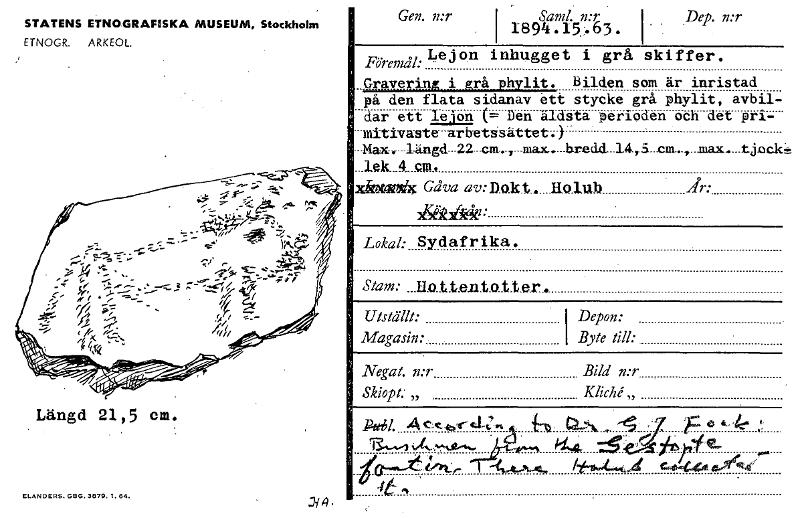 STATENS ETNOGRAFISKA MUSEUM, Stockholm
ETNOGR. ARKEOL.
Längd 21,5 cm.
ELANDERS. GBG. 3679. 1. 64.
HA.
Gen. n:r
Saml. n:r
Dep. n:r
1894.15.63.
Föremål: Lejon inhugget i grå skiffer.
Gravering i grå phylit. Bilden som är inristad
på den flata sidanav ett stycke grå phylit, avbil-
dar ett lejon (= Den äldsta perioden och det pri-
mitivaste arbetssättet.)
Max. längd 22 cm., max. bredd 14,5 cm., max. tjock-
lek 4 cm.
Gåva av: Dokt. Holub År:
Köp från:
Lokal: Sydafrika.
Stam: Hottentotter.
Utställt: Depon:
Magasin: Byte till:
Negat. n:r Bild n:r
Skiopt. „ Kliché „
Publ. According to Dr. G J Fock:
Buschmen from the Gestopte
fontin. There Holub collected
it.